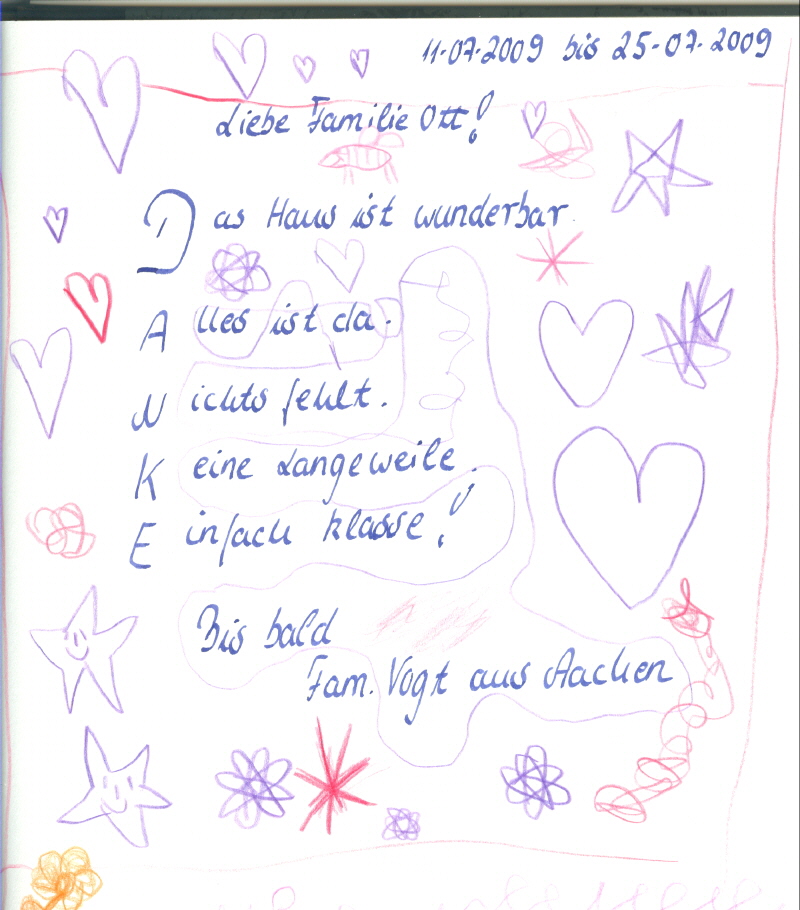 11-07-2009 bis 25-07-2009
Liebe Familie Ott!
Das Haus ist wunderbar.
Alles ist da.
Nichts fehlt.
Keine Langeweile.
Einfach klasse!
Bis bald
Fam. Vogt aus Aachen